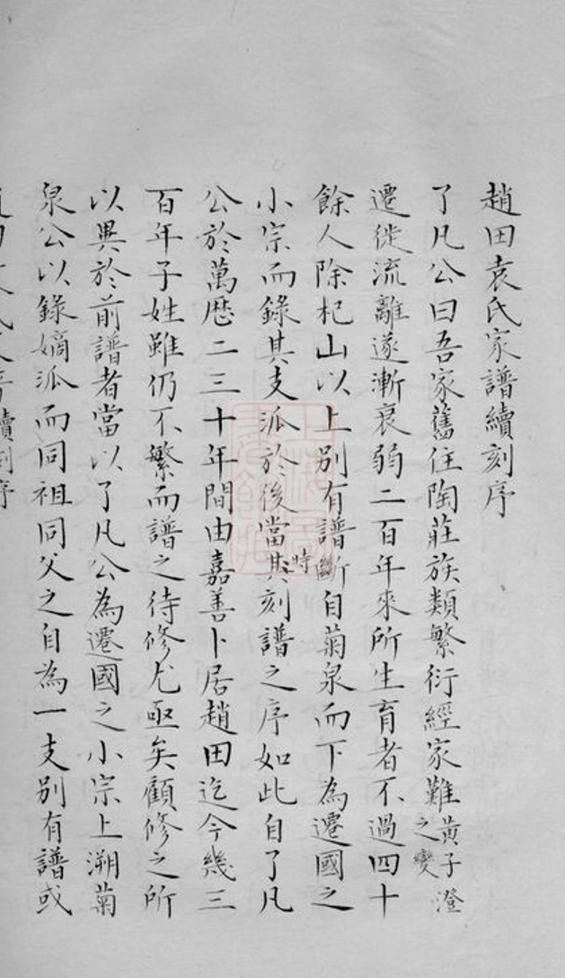 趙田袁氏家譜續刻序
了凡公曰吾家舊住陶莊族類繁衍經家難黃子澄之變
遷徙流離遂漸衰弱二百年來所生育者不過四十
餘人除杞山以上別有譜斷自菊泉而下為遷國之
小宗而錄其支派於後當其時刻譜之序如此自了凡
公於萬曆二三十年間由嘉善卜居趙田迄今幾三
百年子姓雖仍不繁而譜之待修尤亟矣顧修之所
以異於前譜者當以了凡公為遷國之小宗上溯菊
泉公以錄嫡派而同祖同父之自為一支別有譜或